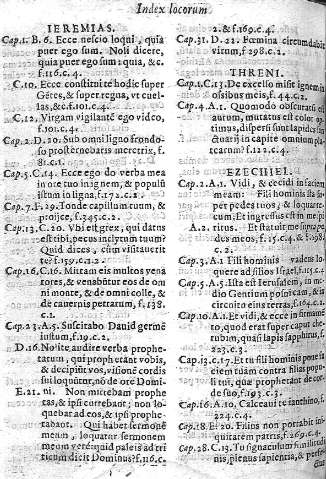 Index locorum
IEREMIAS.
Cap.1.B.6. Ecce nescio loqui, quia
puer ego sum. Noli dicere,
quia puer ego sum: quia, &c.
f.116.c.4.
C.10. Ecce constitui te hodie super
Gētes, & super regna, vt euel
las, &c. f.101.c.4.
C.12. Virgam vigilantē ego video,
f.101.c.4.
Cap.2.D.20. Sub omni ligno frondo-
so prosternebaris meretrix, f.
81.c.1.
Cap.5.C.14. Ecce ego do verba mea
in ore tuo in ignem, & populū
istum in ligna, f.172.c.2.
Cap.7.F.29. Tonde capillum tuum, &
projice, f.345.c.2.
Cap.13.C.20. Vbi est grex, qui datus
est tibi, pecus inclytum tuum?
Quid dices, cùm visitauerit
te? f.159.c.1.2
Cap.16.C.16. Mittam eis multos vena
tores, & venabūtur eos de om
ni monte, & de omni colle, &
de cauernis petrarum, f.138.
c.1.
Cap.23.A.5. Suscitabo Dauid germē
iustum, f.19.c.2.
D.16. Noite audire verba prophe-
tarum, qui prophetant vobis,
& decipiūt vos, visionē cordis
sui loquūtur, nō de ore Domi-
E.21. ni. Non mittebam prophe
tas, & ipsi currebant; non lo-
quebar ad eos, & ipsi prophe-
tabant. Qui habet sermonē
meum, loquatur sermonem
meum verè: quid paleis ad tri
ticum dicit Dominus? f.116.c.
2. & f.169.c.4.
Cap.31.D.22. Fœmina circumdabit
virum, f.298.c.2.
THRENI.
Cap.1.C.13. De excelso misit ignem in
ossibus meis, f.44.c.2.
Cap.4.A.1. Quomodo obscuratū est
aurum, mutatus est color op-
timus, dispersi sunt lapides san
ctuarij in capite omnium pla
tearum? f.122.c.4.
EZECHIEL.
Cap.2.A.1. Vidi, & cecidi in faciem
meam: Fili hominis sta su-
per pedes tuos, & loquar te-
cum. Et ingressus est in me spi
A.2. ritus. Et statuit me supra pe
des meos, f.15.c.4. & f.98.
c.2.
Cap.3.A.1 Fili hominis vade loqu
uere ad filios Israel, f.15.c.4.
Cap.5.A.5. Ista est Ierusalem, in me-
dio Gentium posui eam, & in
circoitu eius terras, f.264.c.1.
Cap.10.A.1. Et vidi, & ecce in firmamē
to, quod erat super caput che-
rubim, quasi lapis sapphirus, f.
223.c.3.
Cap.13.C.17. Et tu fili hominis pone fa
ciem tuam contra filias popu-
li tui, quæ prophetant de cor-
de suo, f.193.c.3.
Cap.16.A.10. Calceaui te ianthino, f.
224.c.4.
Cap.18.E.20. Filius non portabit ini-
quitatem patris, f.269.c.4.
Cap.28.C.13. Tu signaculum similitudi
nis, plenus sapientia, & perfe-